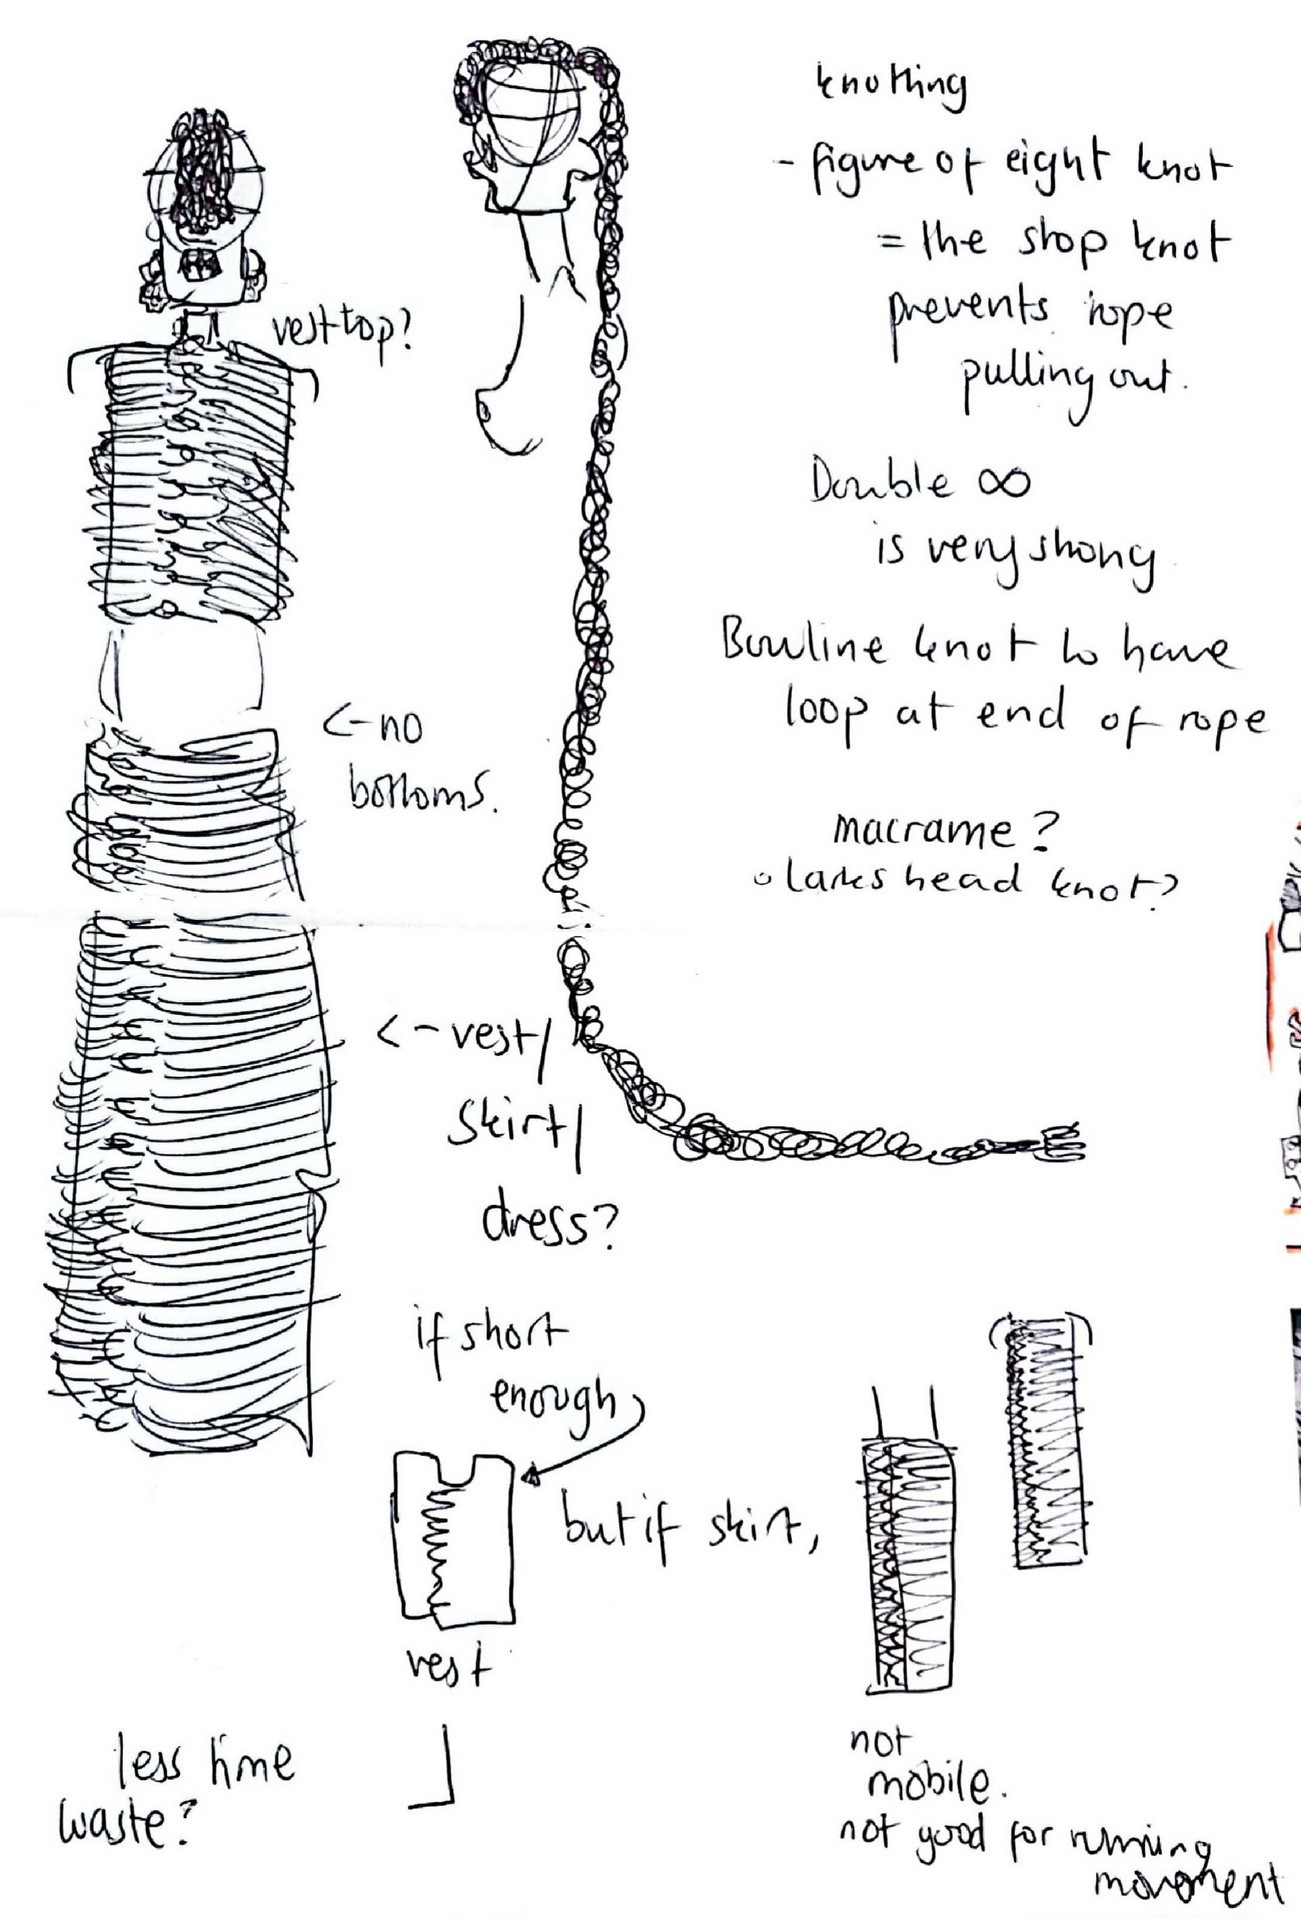 knotting
- figure of eight knot
= the stop knot
prevents rope
pulling out.
Double ∞
is very strong
Bowline knot to have
loop at end of rope
macrame?
o larks head knot?
vest top?
<- no
bottoms.
<- vest/
skirt/
dress?
if short
enough
vest
but if skirt,
less time
waste?
not
mobile.
not good for running
movement